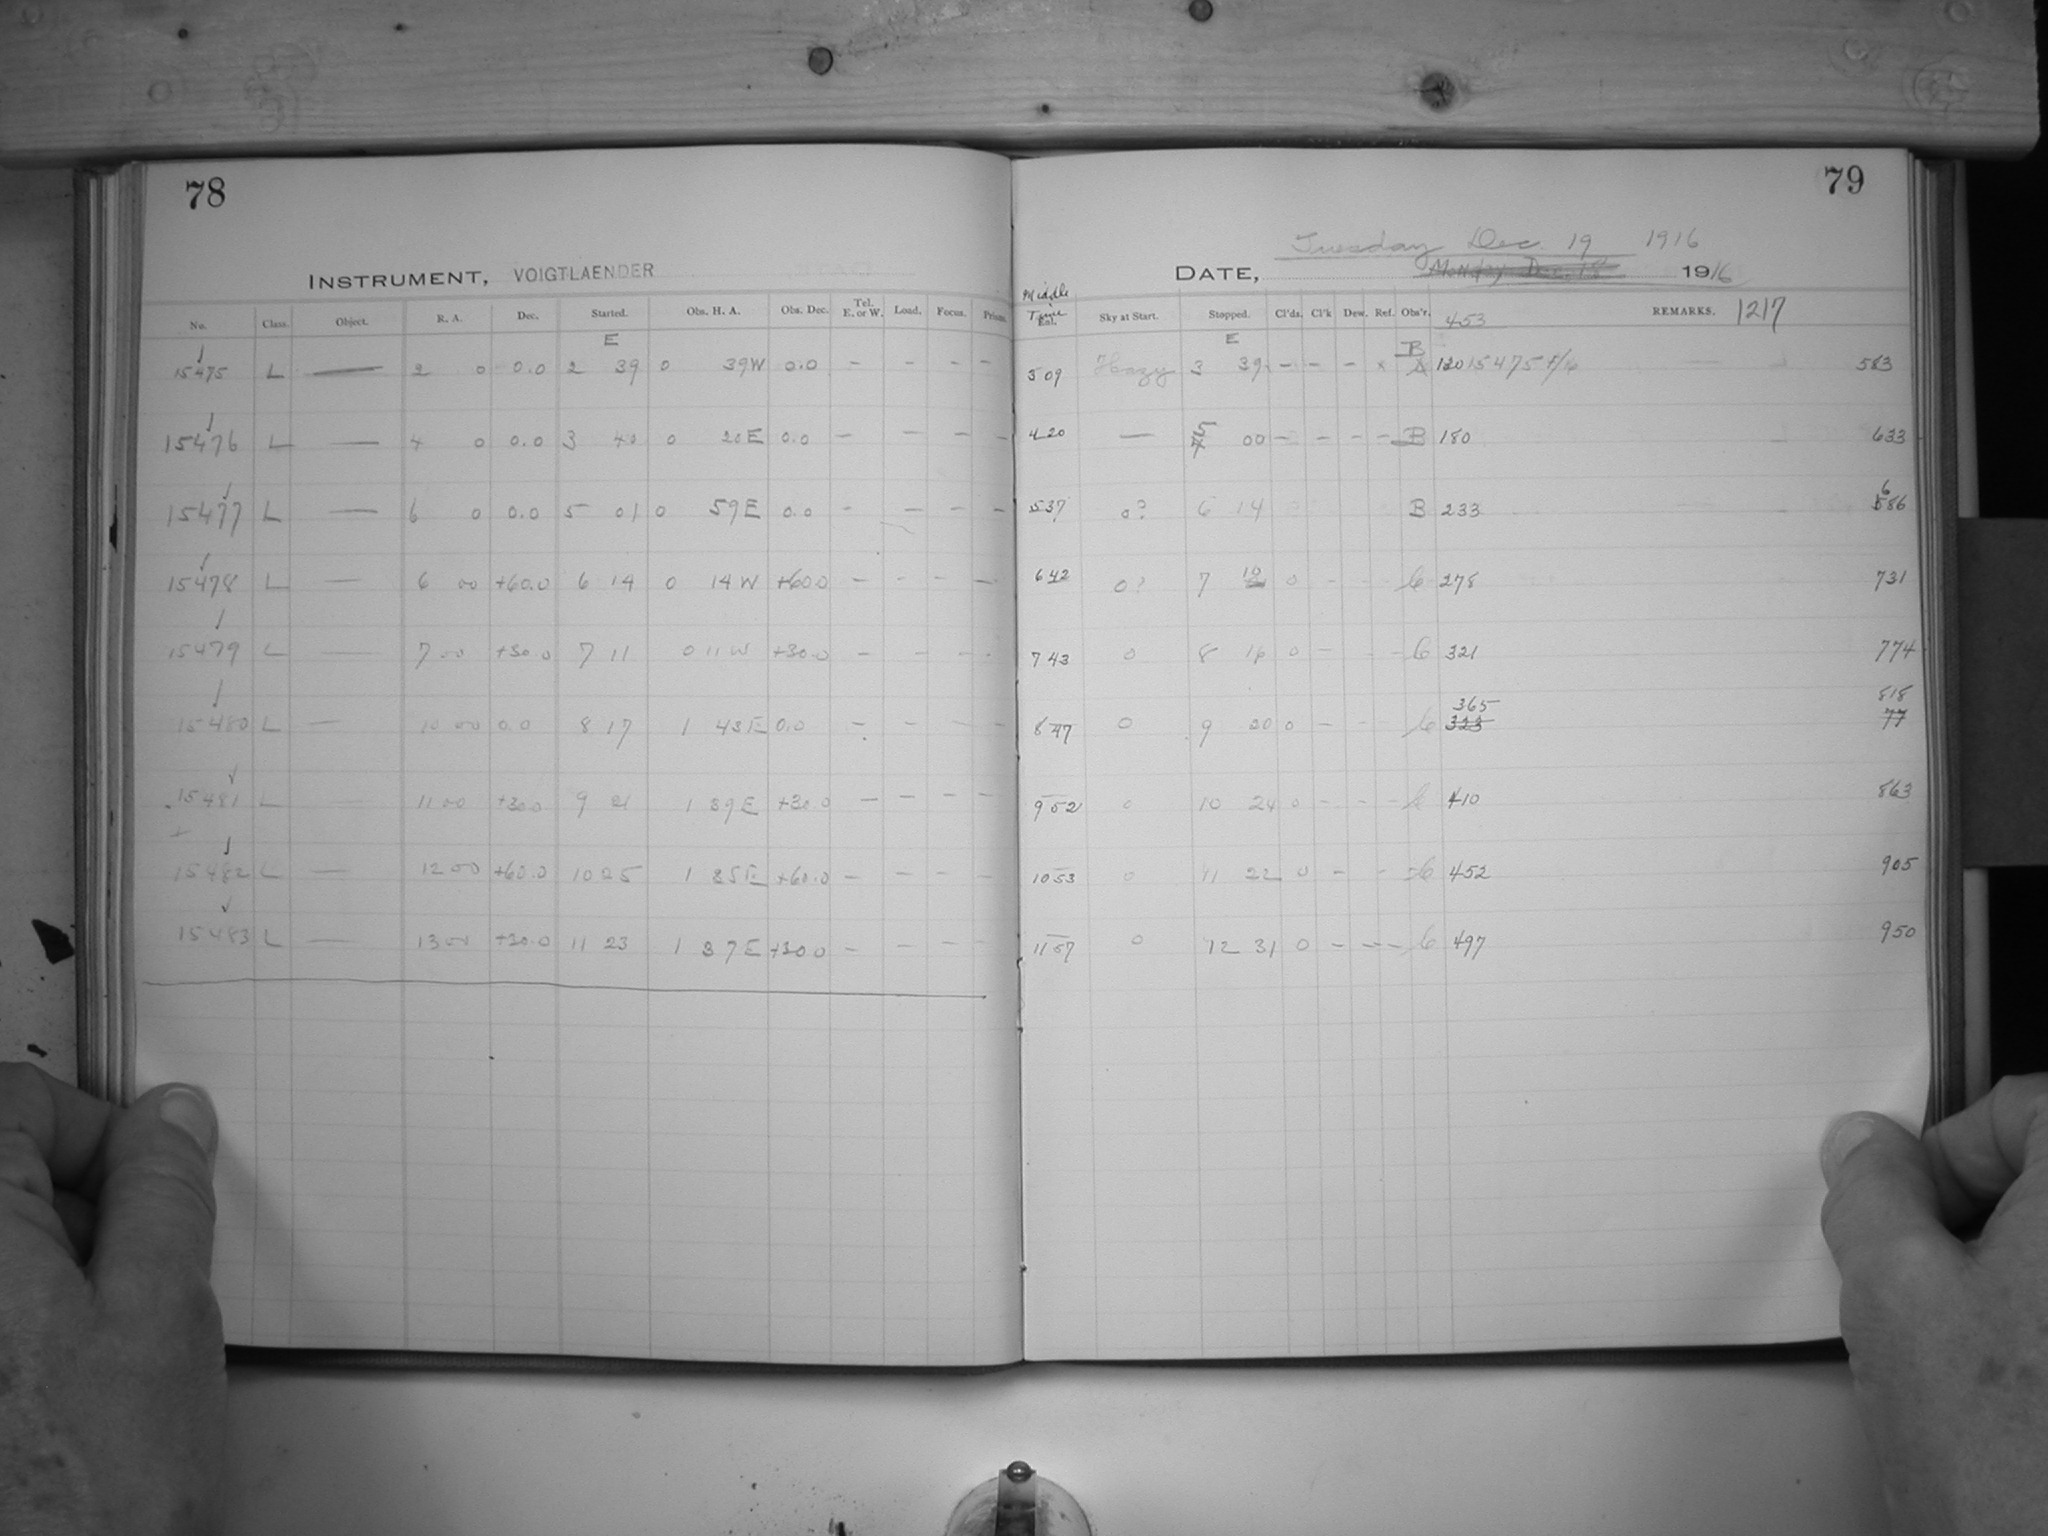 78
INSTRUMENT, VOIGTLAENDER
No. Class. Object. R. A. Dec. Started. Obs. H. A. Obs. Dec. Tel. E. or W. Load. Focus. Prism.
E
15475 L — 2 0 0.0 2 39 0 39W 0.0 — — — —
15476 L — 4 0 0.0 3 40 0 20E 0.0 — — — —
15477 L — 6 0 0.0 5 01 0 59E 0.0 — — — —
15478 L — 6 00 +60.0 6 14 0 14W +60.0 — — — —
15479 L — 7 00 +30.0 7 11 0 11W +30.0 — — — —
15480 L — 10 00 0.0 8 17 1 43E 0.0 — — — —
15481 L — 11 00 +30.0 9 21 1 39E +30.0 — — — —
15482 L — 12 00 +60.0 10 25 1 35E +60.0 — — — —
15483 L — 13 00 +30.0 11 23 1 37E +30.0 — — — —
79
Tuesday Dec. 19 1916
DATE, Monday Dec. 18 1916
Middle Time Eol. Sky at Start. Stopped. Cl'ds. Cl'k Dew. Ref. Obs'r. REMARKS. 1217
453
E
3 09 Hazy 3 39 — — — B 120 15475 583
4 20 — 5 00 — — — — B 180 633
5 37 0? 6 14 B 233 686
6 42 0? 7 10 0 — — 278 731
7 43 0 8 16 0 — — — 321 774
365 818
8 47 0 9 20 0 — — — 323 77
9 52 0 10 24 0 — — — 410 863
10 53 0 11 22 0 — — — 452 905
11 57 0 12 31 0 — — — 497 950